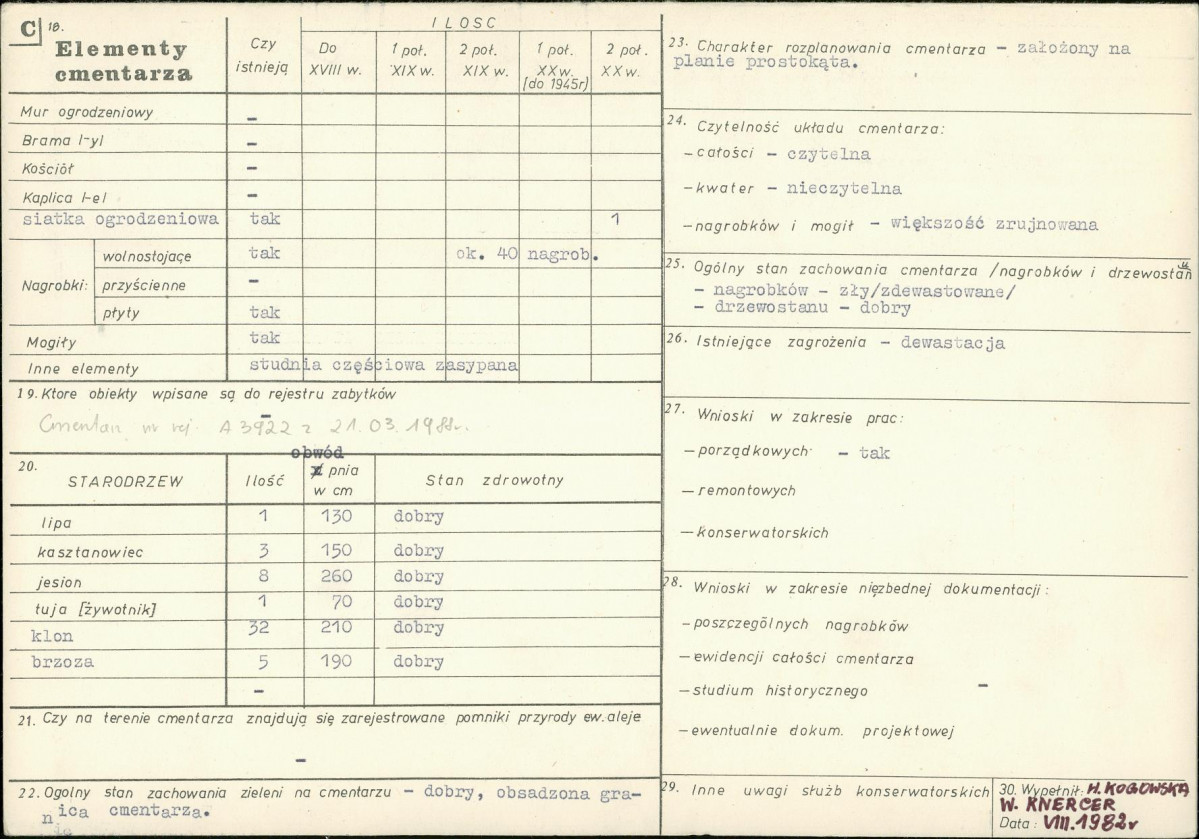 C 18.
Elementy cmentarza
Czy istnieją
ILOSC
Do XVIII w.
1 poł. XIX w.
2 poł. XIX w.
1 poł. XX w. [do 1945r]
2 poł. XX w.
Mur ogrodzeniowy –
Brama I-yl –
Kościół –
Kaplica I-el –
siatka ogrodzeniowa tak 1
Nagrobki: wolnostojące tak ok. 40 nagrob.
przyścienne –
płyty tak
Mogiły tak
Inne elementy studnia częściowa zasypana
19. Ktore obiekty wpisane są do rejestru zabytków
–
Cmentarz nr rej. A 3922 z 21.03.1988r.
20. STARODRZEW
Ilość
obwód
pnia
w cm
Stan zdrowotny
lipa 1 130 dobry
kasztanowiec 3 150 dobry
jesion 8 260 dobry
tuja [żywotnik] 1 70 dobry
klon 32 210 dobry
brzoza 5 190 dobry
–
21. Czy na terenie cmentarza znajdują się zarejestrowane pomniki przyrody ew. aleje
–
22. Ogolny stan zachowania zieleni na cmentarzu – dobry, obsadzona gra-
nica cmentarza.
23. Charakter rozplanowania cmentarza – założony na
planie prostokąta.
24. Czytelność układu cmentarza:
– całości – czytelna
– kwater – nieczytelna
– nagrobków i mogił – większość zrujnowana
25. Ogólny stan zachowania cmentarza /nagrobków i drzewostanu
– nagrobków – zły/zdewastowane/
– drzewostanu – dobry
26. Istniejące zagrożenia – dewastacja
27. Wnioski w zakresie prac:
– porządkowych – tak
– remontowych
– konserwatorskich
28. Wnioski w zakresie nięzbednej dokumentacji:
– poszczególnych nagrobków
– ewidencji całości cmentarza
– studium historycznego –
– ewentualnie dokum. projektowej
29. Inne uwagi służb konserwatorskich
30. Wypełnił: H. KOGOWSKA
W. KNERCER
Data: VIII.1982r